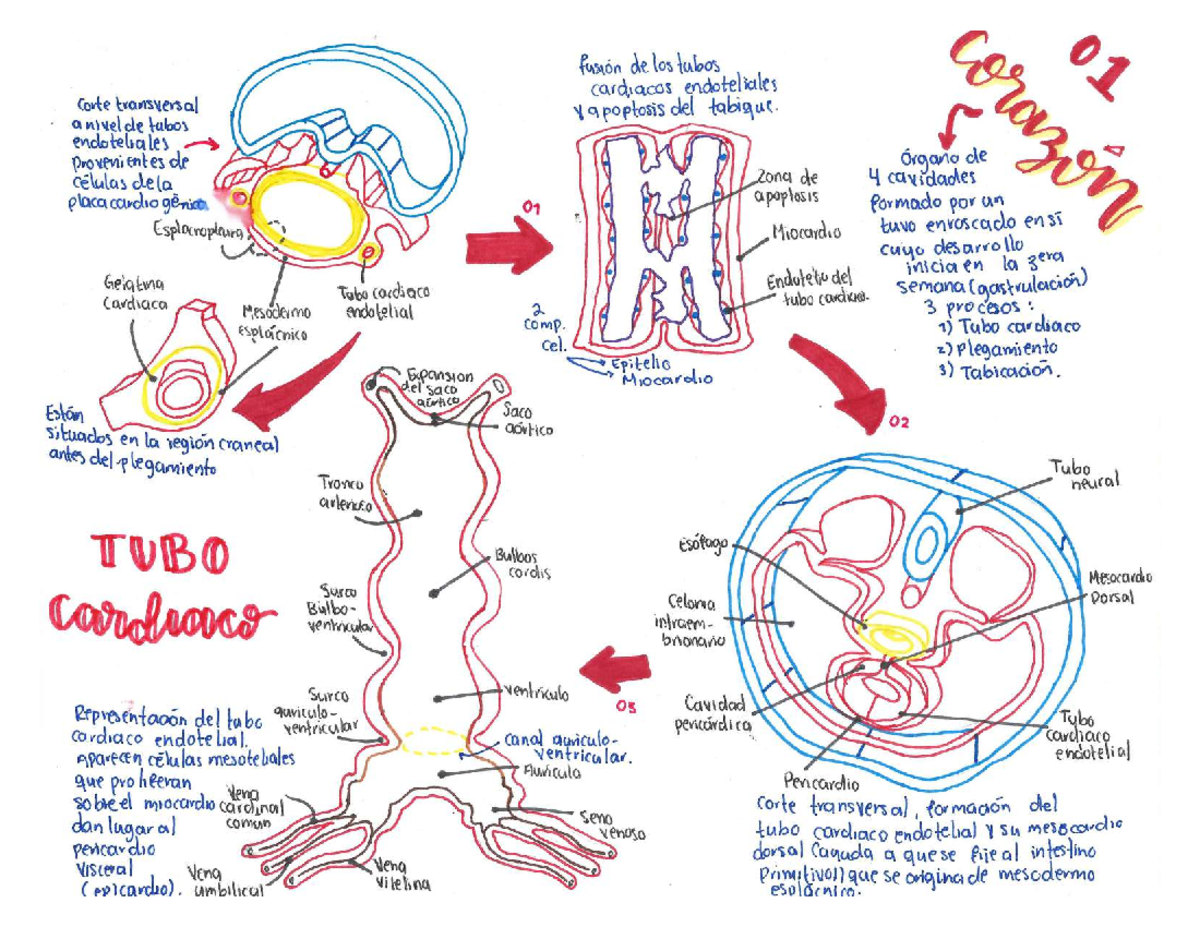 01
Corazón
Órgano de
4 cavidades
formado por un
tuvo enroscado en sí
cuyo desarrollo
inicia en la 3era
semana (gastrulación)
3 procesos:
1) Tubo cardiaco
2) Plegamiento
3) Tabicación.
Corte transversal
a nivel de tubos
endoteliales
provenientes de
células de la
placa cardiogénica
Esplacnopleura
Gelatina
Cardiaca
Mesodermo
esplácnico
Tubo cardiaco
endotelial
Están
situados en la región craneal
antes del plegamiento
01
fusión de los tubos
cardiacos endoteliales
y apoptosis del tabique.
Zona de
apoptosis
Miocardio
Endotelio del
tubo cardiaco.
2
comp.
cel.
Epitelio
Miocardio
02
Tubo
neural
Esófago
Mesocardio
Dorsal
Celoma
intraem-
brionario
Cavidad
pericárdica
Tubo
cardiaco
endotelial
Pericardio
Corte transversal, formación del
tubo cardiaco endotelial y su mesocardio
dorsal (ayuda a que se fije al intestino
primitivo) que se origina de mesodermo
esplácnico.
03
TUBO
Cardiaco
Expansion
del saco
aórtico
Saco
aórtico
Tronco
arterioso
Bulbos
cordis
Surco
Bulbo-
ventricular
Surco
auriculo-
ventricular
Ventriculo
Canal auriculo-
ventricular.
Auricula
Seno
venoso
Vena
cardinal
común
Vena
umbilical
Vena
vitelina
Representación del tubo
cardiaco endotelial.
Aparecen células mesoteliales
que proliferan
sobre el miocardio
dan lugar al
pericardio
visceral
(epicardio).